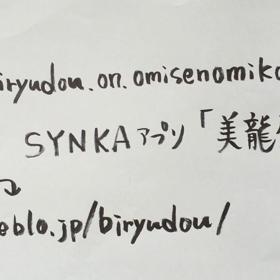 iryudou.on.omisenomiko
SYNKAアプリ「美龍
eblo.jp/biryudou/